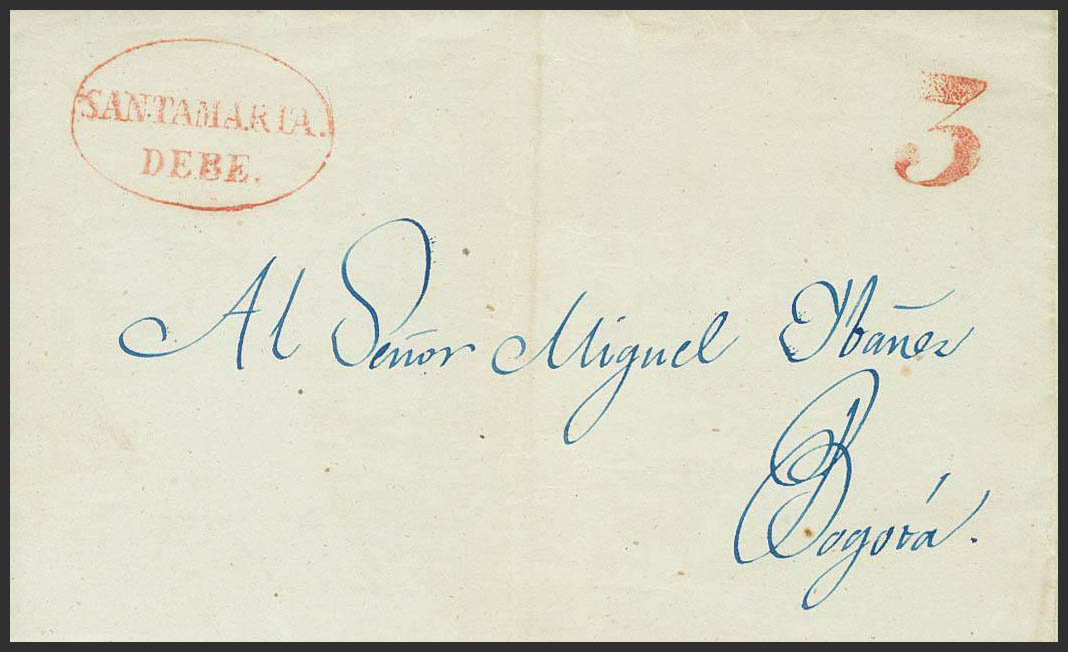 SANTAMARIA.
DEBE.
3
Al Señor Miguel Ybañez
Bogotá.